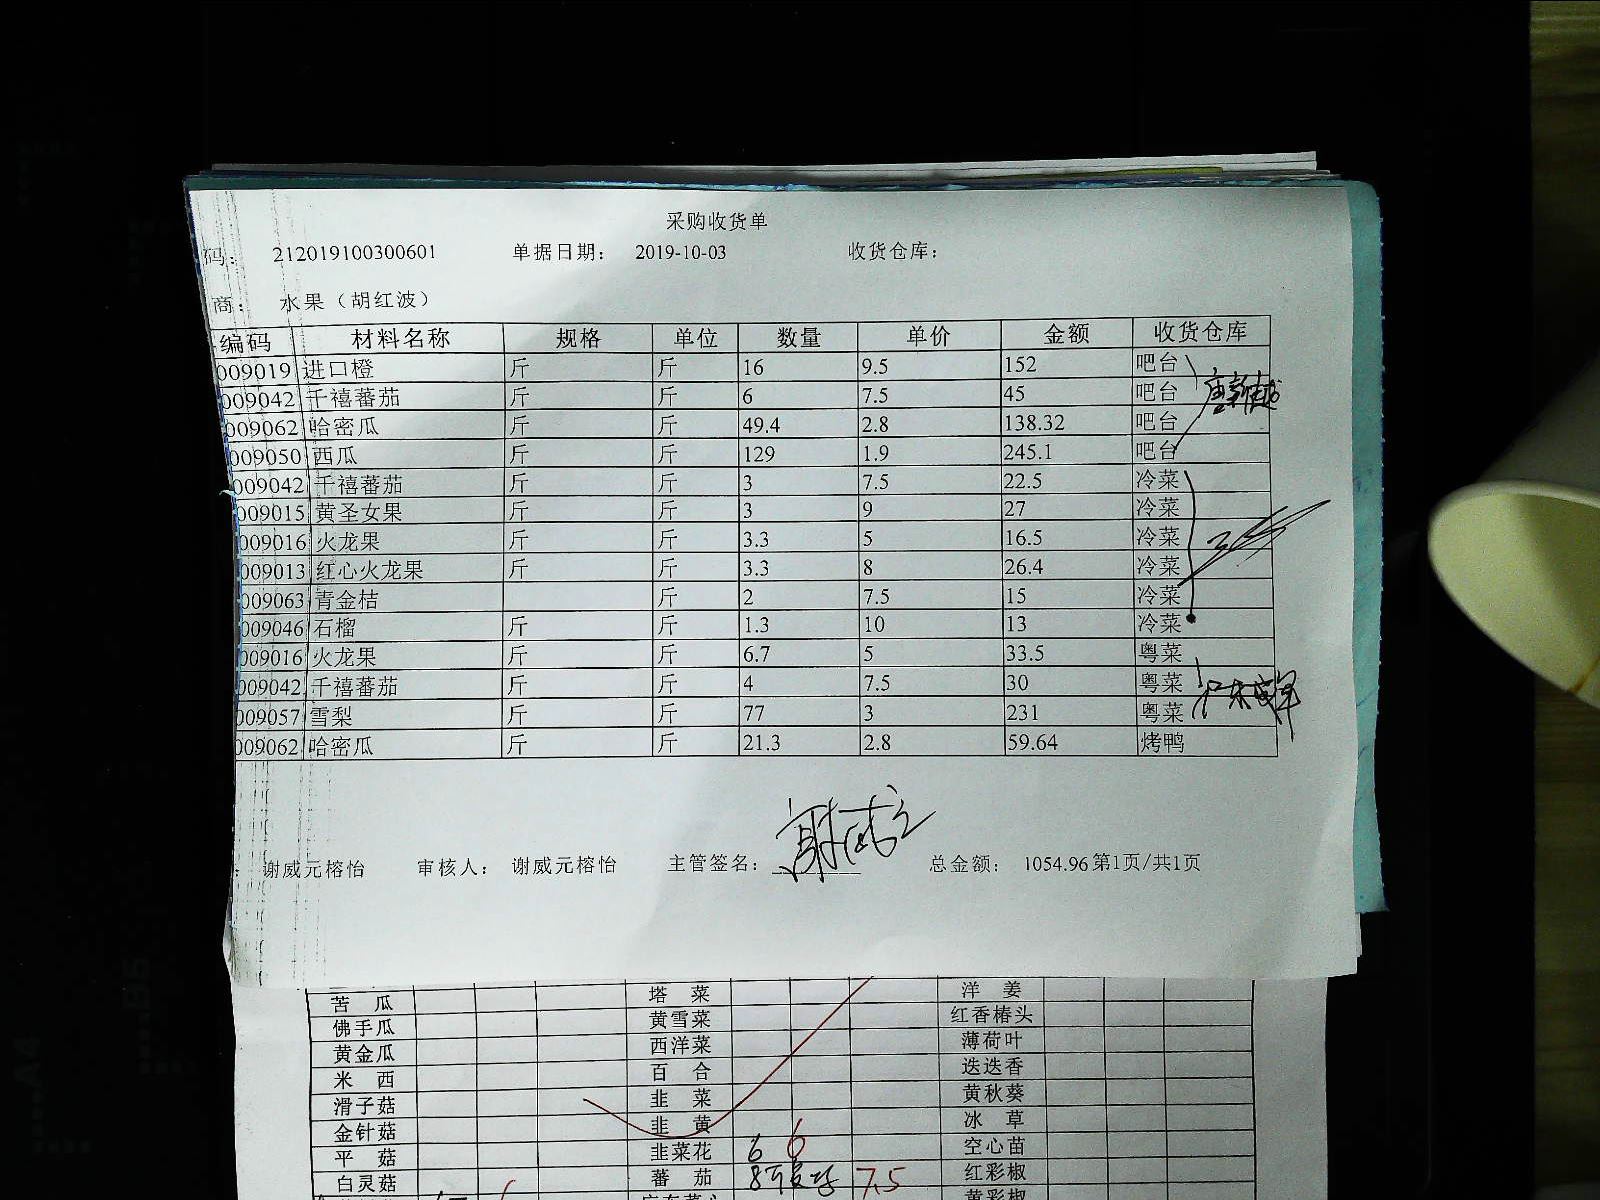 采购收货单
码： 212019100300601 单据日期： 2019-10-03 收货仓库：
商： 水果（胡红波）
编码 材料名称 规格 单位 数量 单价 金额 收货仓库
009019 进口橙 斤 斤 16 9.5 152 吧台
009042 千禧蕃茄 斤 斤 6 7.5 45 吧台
009062 哈密瓜 斤 斤 49.4 2.8 138.32 吧台
009050 西瓜 斤 斤 129 1.9 245.1 吧台
009042 千禧蕃茄 斤 斤 3 7.5 22.5 冷菜
009015 黄圣女果 斤 斤 3 9 27 冷菜
009016 火龙果 斤 斤 3.3 5 16.5 冷菜
009013 红心火龙果 斤 斤 3.3 8 26.4 冷菜
009063 青金桔 斤 2 7.5 15 冷菜
009046 石榴 斤 斤 1.3 10 13 冷菜
009016 火龙果 斤 斤 6.7 5 33.5 粤菜
009042 千禧蕃茄 斤 斤 4 7.5 30 粤菜
009057 雪梨 斤 斤 77 3 231 粤菜
009062 哈密瓜 斤 斤 21.3 2.8 59.64 烤鸭
谢威元榕怡 审核人： 谢威元榕怡 主管签名： 总金额： 1054.96 第1页/共1页
苦 瓜 塔 菜 洋 姜
佛手瓜 黄雪菜 红香椿头
黄金瓜 西洋菜 薄荷叶
米 西 百 合 迭迭香
滑子菇 韭 菜 黄秋葵
金针菇 韭 黄 冰 草
平 菇 韭菜花 6 6 空心苗
白灵菇 蕃 茄 7.5 红彩椒
黄彩椒